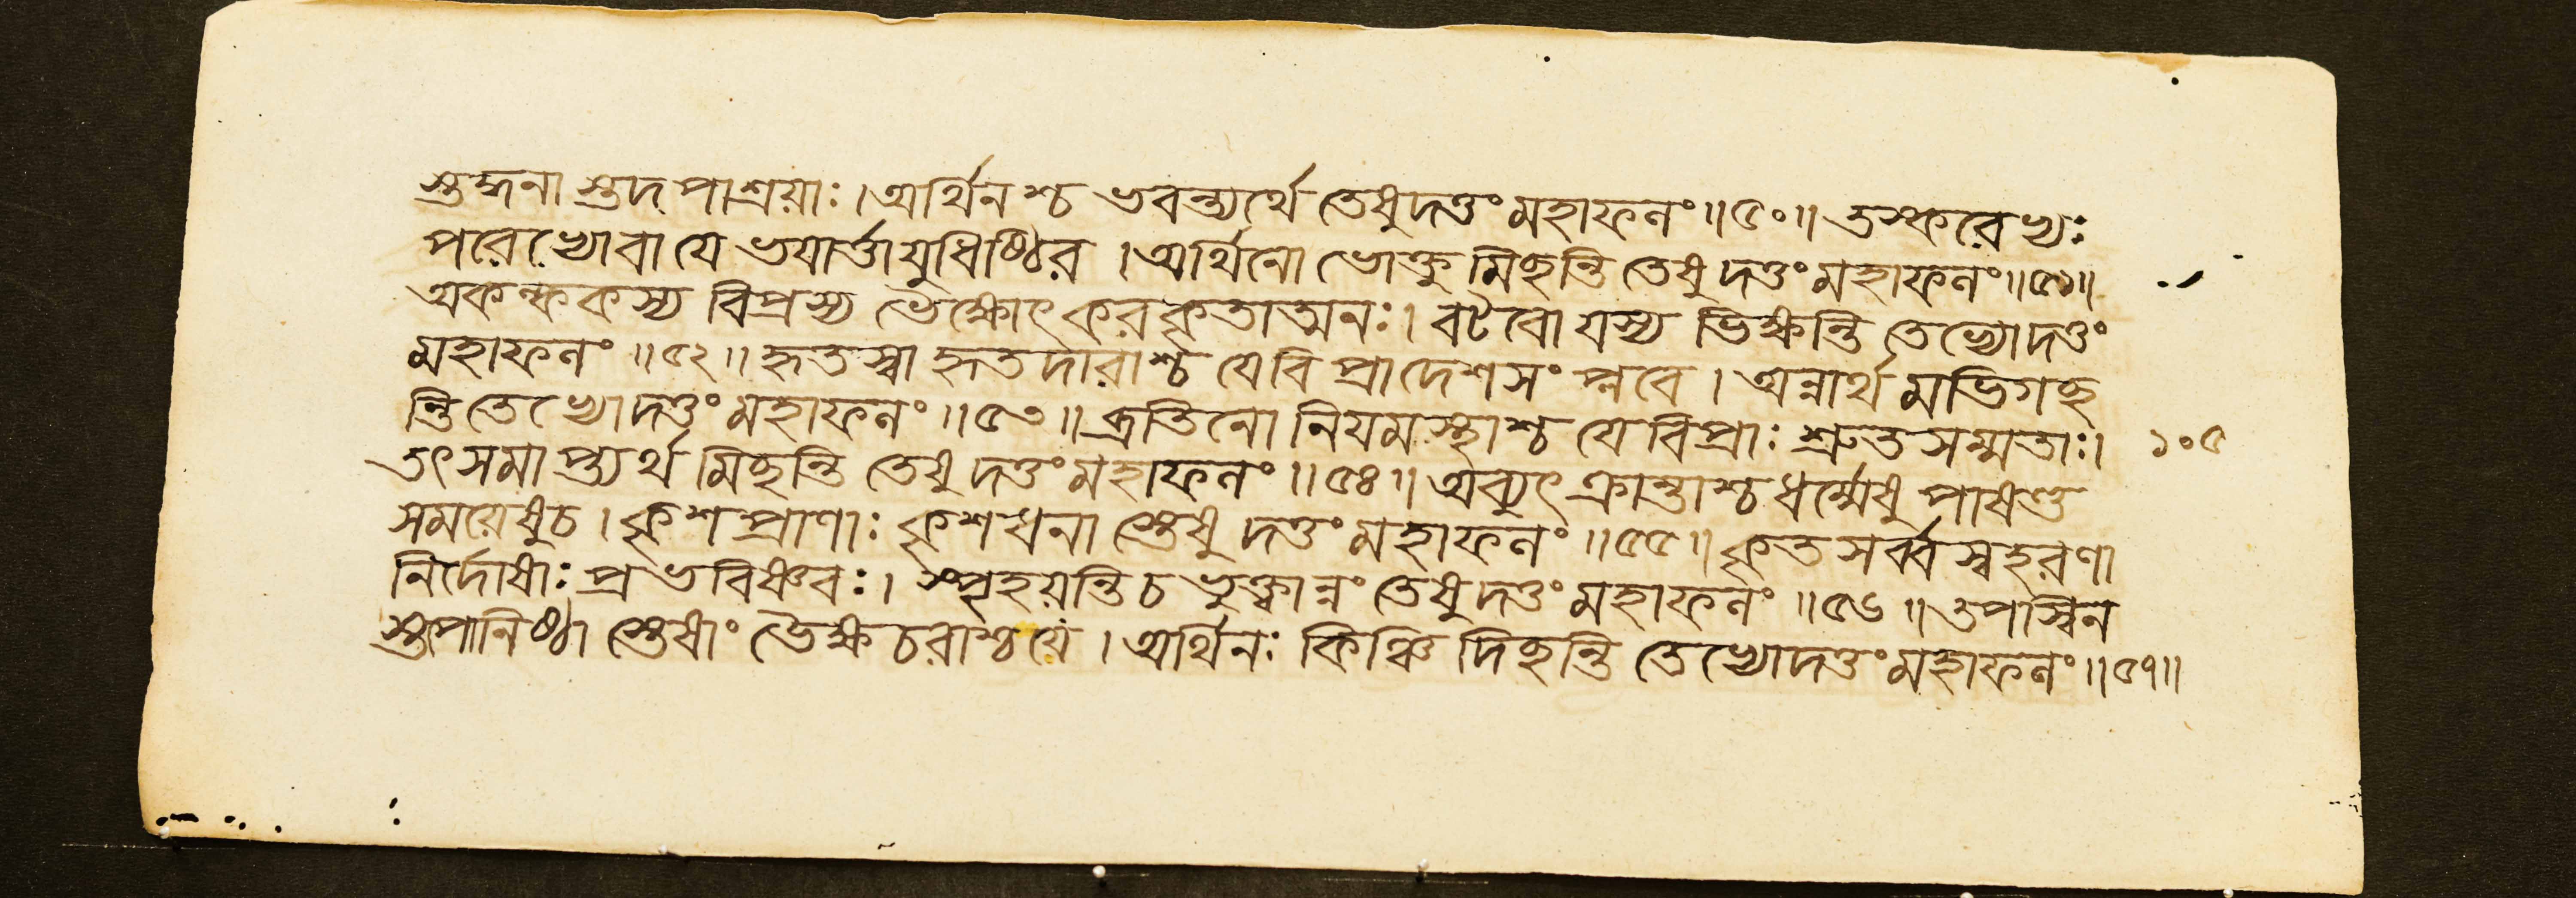 স্তদ্ধনা স্তদপাশ্রয়াঃ। অর্থিনশ্চ ভবন্ত্যর্থে তেষুদত্তং মহাফলং॥৫০॥ তস্করেভ্যঃ
পরেভ্যোবা যে ভয়ার্ত্তা যুধিষ্ঠির । অর্থিনো ভোক্তু মিছন্তি তেষু দত্তং মহাফলং॥৫১॥
অকল্ককস্য বিপ্রস্য ভৈক্ষোৎকরকৃতাত্মনঃ। বটবো যস্য ভিক্ষন্তি তেভ্যোদত্তং
মহাফলং ॥৫২॥ হৃতস্বা হৃতদারাশ্চ যেবিপ্রাদেশসংপ্লবে । অন্নার্থ মভিগছ
ন্তি তেভ্যোদত্তং মহাফলং ॥৫৩॥ ব্রতিনো নিয়মস্থাশ্চ যেবিপ্রাঃ শ্রুতসম্মতাঃ।
১০৫
তৎসমাপ্ত্যর্থ মিছন্তি তেষু দত্তং মহাফলং ॥৫৪॥ অব্যুৎক্রান্তাশ্চ ধর্ম্মেষু পাষণ্ড
সময়েষুচ । কৃশপ্রাণাঃ কৃশধনা স্তেষু দত্তং মহাফলং ॥৫৫॥ কৃতসর্ব্বস্বহরণা
নির্দোষাঃ প্রভবিষ্ণবঃ। স্পৃহয়ন্তিচ ভুক্ত্বান্নং তেষুদত্তং মহাফলং ॥৫৬॥ তপস্বিন
স্তপোনিষ্ঠা স্তেষাং ভৈক্ষচরাশ্চয়ে । অর্থিনঃ কিঞ্চি দিছন্তি তেভ্যোদত্তং মহাফলং॥৫৭॥